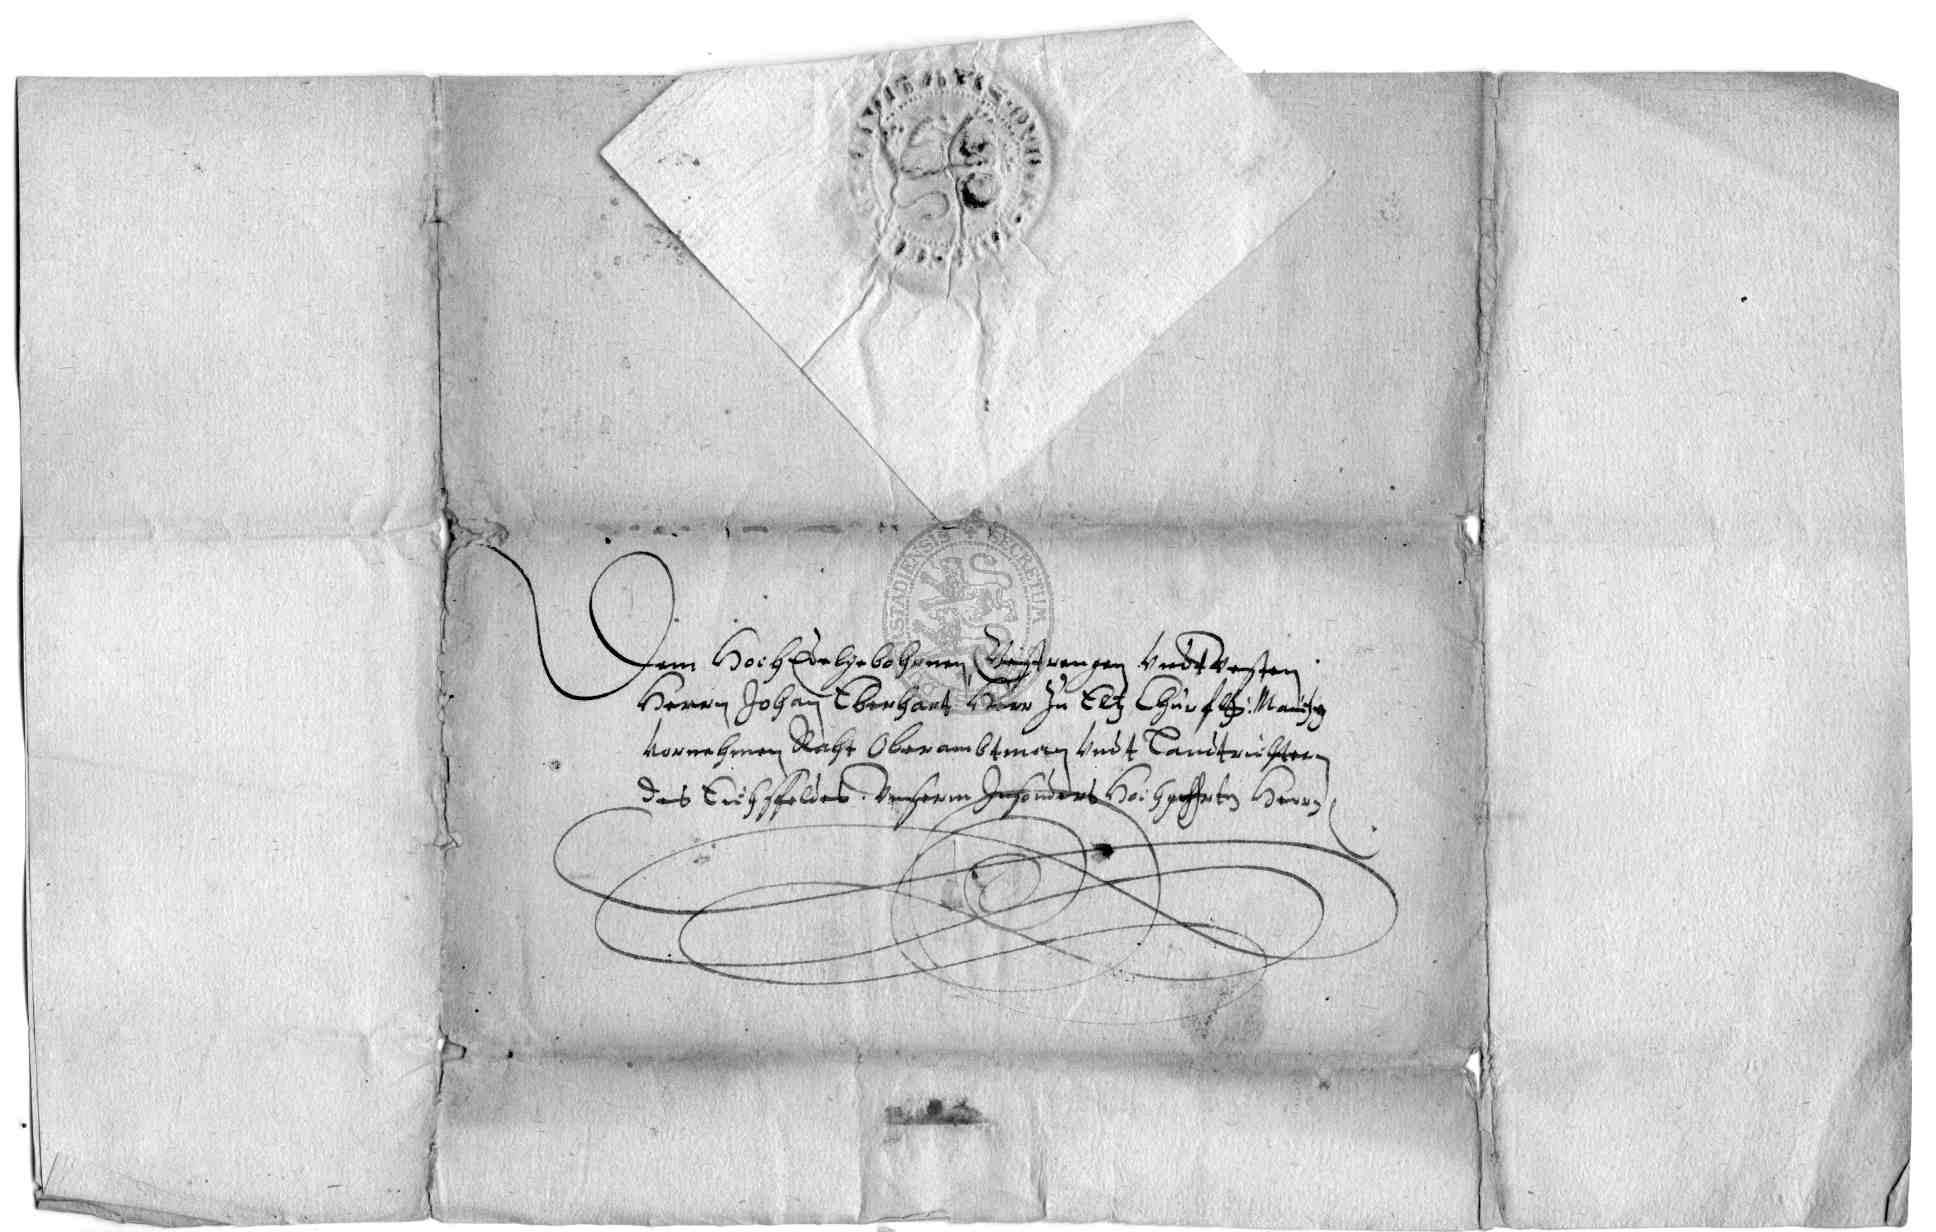 SECRETUM
Dem HochEdelgebohrnen Gestrengen Vndt Vesten
Herrn Johan Eberhart Herr Zu Eltz Churfl: Maintz
Vornehmen Raht Oberambtman Vndt Landtrichtern
des Eichsfeldes. Vnserm Insonders Hochgeehrten Herrn